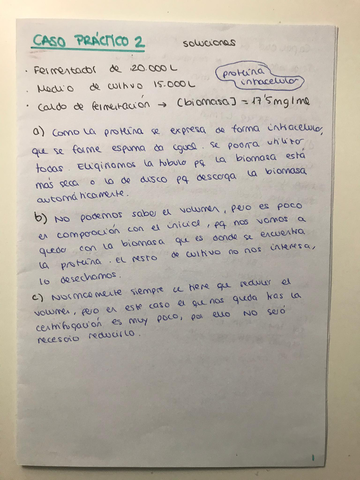 CASO PRÁCTICO 2 soluciones
· Fermentador de 20.000 L
· Medio de cultivo 15.000 L
proteína intracelular
· Caldo de fermentación → [biomasa] = 17'5 mg/ml
a) Como la proteína se expresa de forma intracelular,
que se forme espuma da igual. Se podría utilizar
todas. Eligiríamos la tubular pq la biomasa está
más seca o la de disco pq descarga la biomasa
automáticamente.
b) No podemos saber el volumen, pero es poco
en comparación con el inicial, pq nos vamos a
quedar con la biomasa que es donde se encuentra
la proteína. El resto de cultivo no nos interesa,
lo desechamos.
c) Normalmente siempre se tiene que reducir el
volumen, pero en este caso el que nos queda tras la
centrifugación es muy poco, por ello NO será
necesario reducirlo.
1